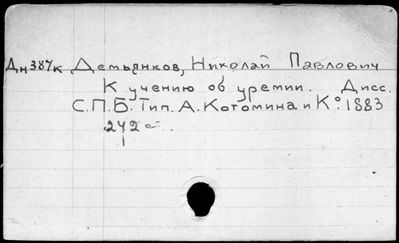 Дн387к Демьянков, Николай Павлович
К учению об уремии. Дисс.
С.П.Б. Тип. А. Котомина и К° 1883
242 с.
1